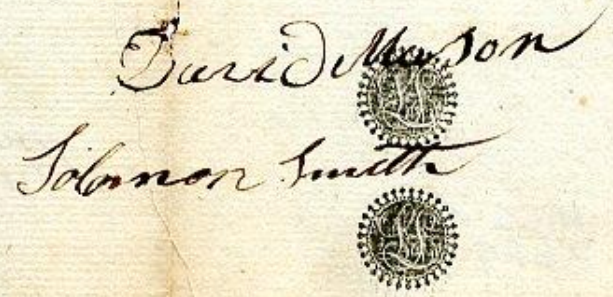 David Mason
LS
Solomon Smith
LS